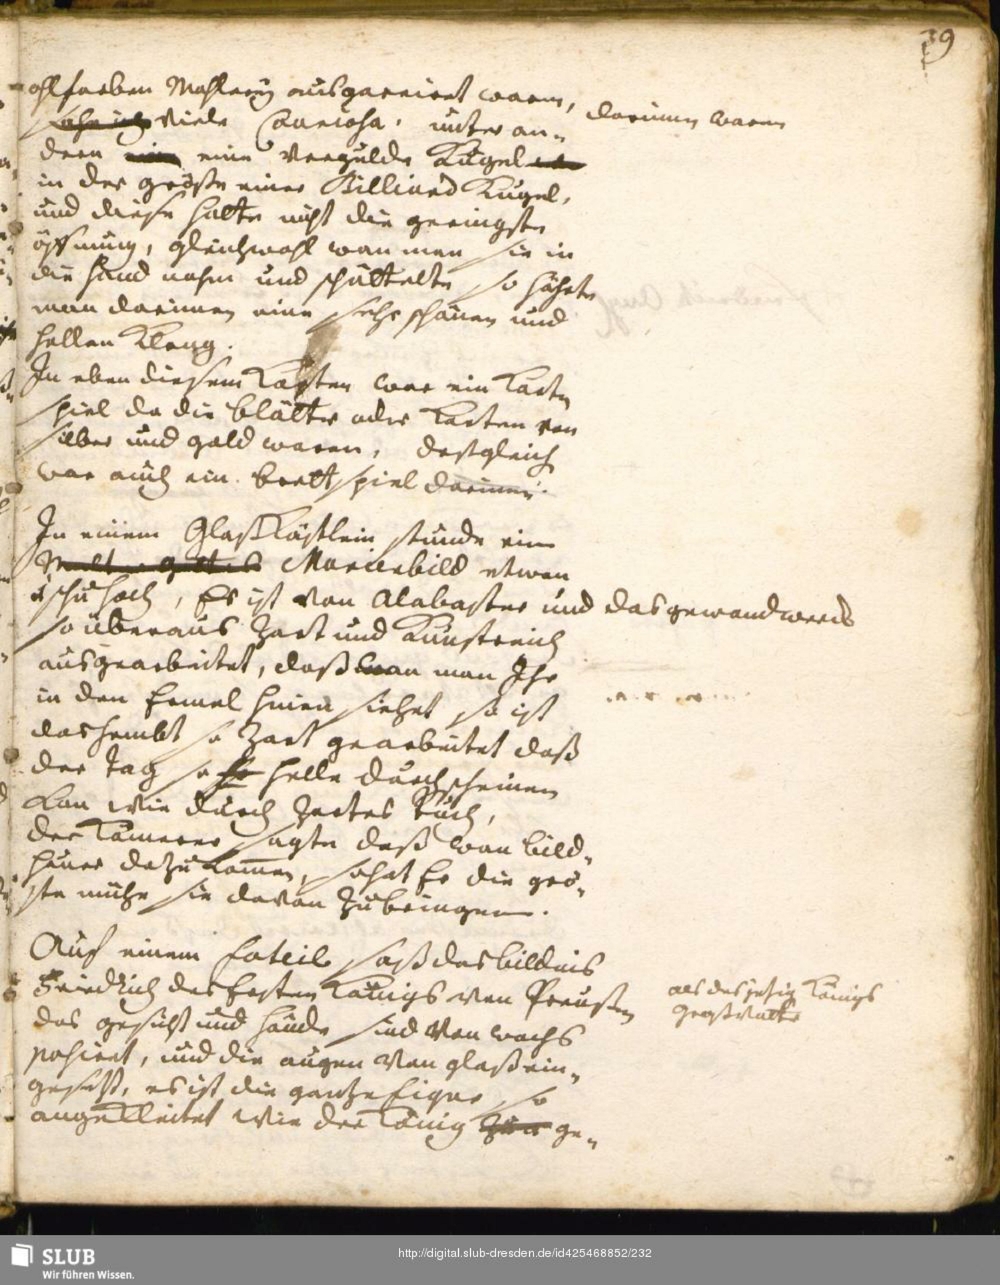 39
ohlfarben Mahlereÿ ausgarnirt waren, darinnen waren
sahe ich viele Curiosa, unter an-
dern ein eine vergulde Kugel
in der größe einer Billiard Kugel,
und diese hatte nicht die geringste
öffnung, gleichwohl wan man sie in
die Hand nahm und schüttelte so höhrte
man darinnen eine sehr schönen und
hellen Klang.
In eben diesem Kasten war ein Karten
spiel da die blätter oder Karten von
silber und gold waren, deßgleich
war auch ein brettspiel darinnen.
In einem Glaßkästlein stunde ein
Marienbild etwan
schu hoch, Es ist von Alabaster und das gewand werd
so überaus zart und Kunstreich
ausgearbeitet, daß wan man Ihr
in den Ermel hinein siehet so ist
das hembt so zart gearbeitet daß
der Tag so helle durchscheinen
kan wie durch zartes Tuch,
der Kämerer sagte daß wan bild-
hauer dazu kom̄en, so hat Er die grö-
ste mühe sie davon zubringen.
Auf einem Foteils saß das bildnis
Friedrich des Ersten Königs von Preußen als des jetzig Königs
Großvatter
das gesicht und hände sind von wachs
poßiert, und die augen von glaß ein-
gesetzt, es ist die gantze Figur so
angekleitet wie der König zur ge-
SLUB
Wir führen Wissen.
http://digital.slub-dresden.de/id425468852/232